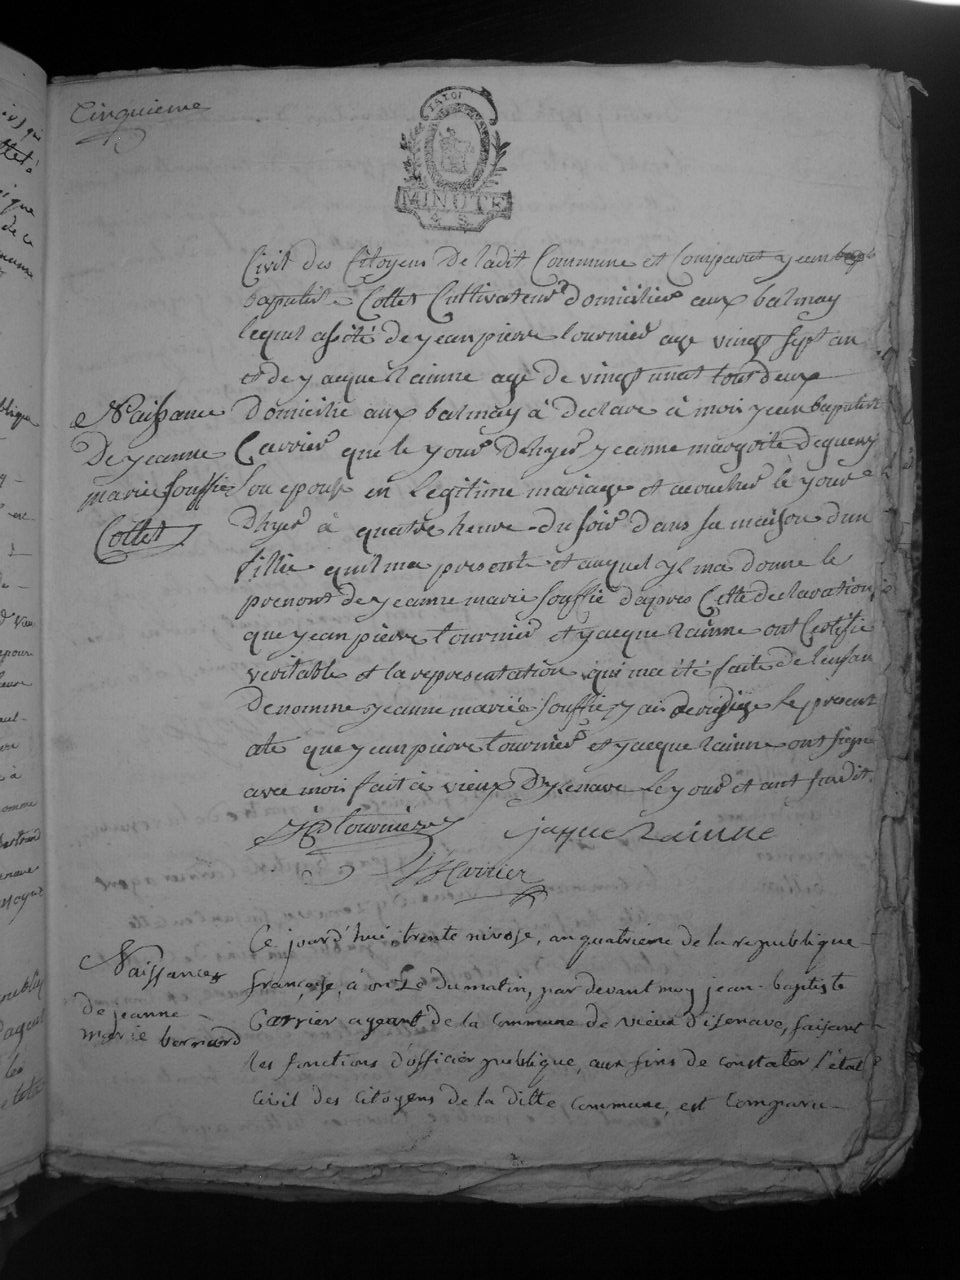 Cinquieme
LA LOI
MINUTE
Civil des Citoyens De ladit Commune et Comparut yean
baputiste Collet Cultivateur domicilier aux balmay
lequel assité de yean pierre tournier age vingt sept an
et de yacque rainne age de vingt unat tout deux
Naissance
De yeanne
marie souffie
Collet
domicilie aux balmay à declare à moi yean baputiste
Carrier que le your Dhyer yeanne margoite deguery
sou epouse en legitime mariage et acoucher le your
Dhyer à quatre heure du soir dans sa maison dun
fillie quil ma presente et auquel yl ma donne le
prenont de yeanne marie souffie dapres Cette declaration
que yean pierre tournier et yacque rainne ont Certifie
veritable et la representation qui ma été faite de lenfan
denomme yeanne marie souffie y ai derigige le present
ate que yean pierre tournier et yacque rainne ont signe
avec moi fait à vieux Dysenave le your et ant surdit
tournier jaque rainne
Carrier
Naissance
de jeanne
marie bernard
Ce jourd'hui, trente nivose, an quatrieme de la republique
françoise, à onze du matin, par devant moy jean-baptiste
Carrier agent de la commune de vieux d'isenave, faisant
les fonctions d'officier publique, aux fins de constater l'état
Civil des citoyens de la ditte commune, est comparu